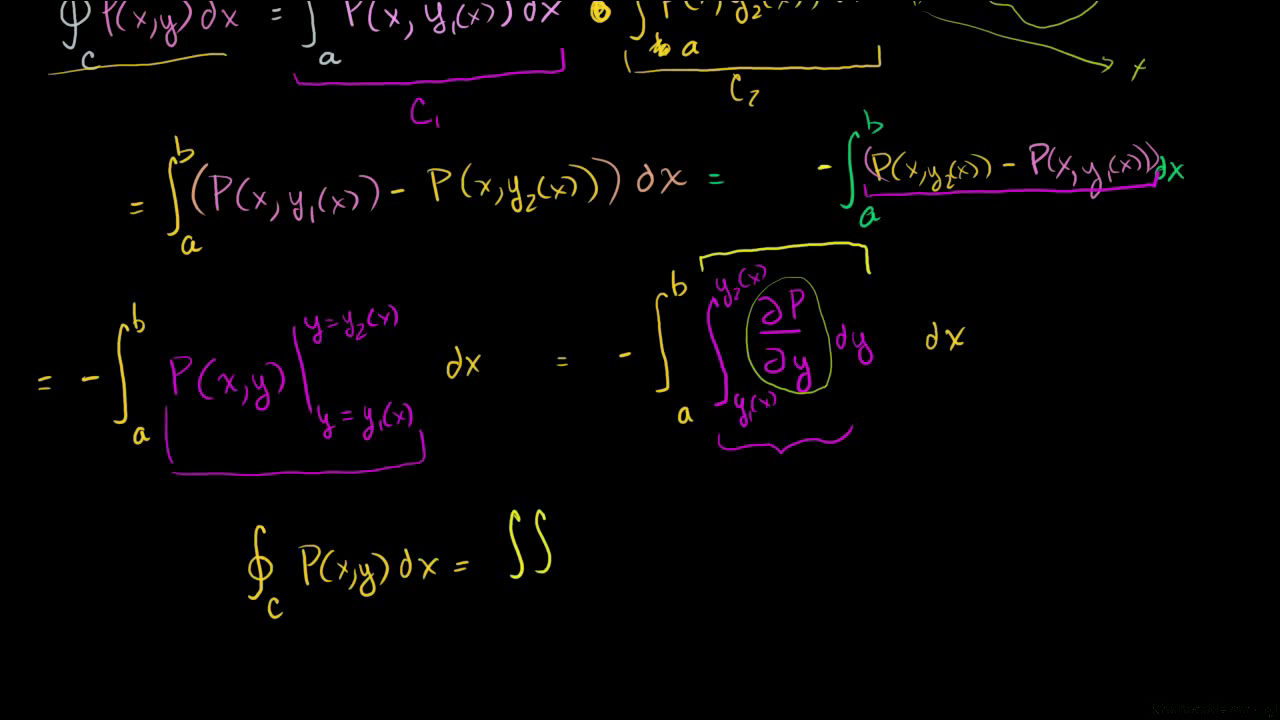 ∮_C P(x,y) dx = ∫_a P(x, y₁(x)) dx ∫_a P(x, y₂(x))
C₁ C₂ x
= ∫_a^b (P(x, y₁(x)) - P(x, y₂(x))) dx = -∫_a^b (P(x, y₂(x)) - P(x, y₁(x))) dx
= -∫_a^b P(x,y) |_{y = y₁(x)}^{y = y₂(x)} dx = -∫_a^b ∫_{y₁(x)}^{y₂(x)} ∂P/∂y dy dx
∮_C P(x,y) dx = ∬